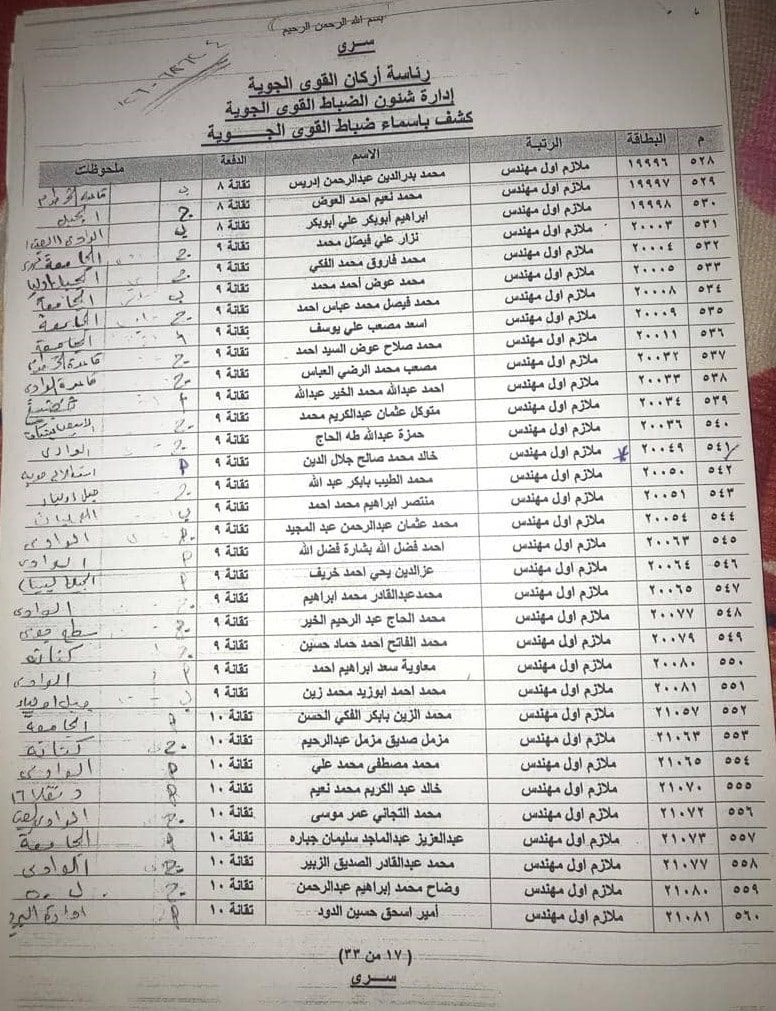 بسم الله الرحمن الرحيم
سرى
رئاسة أركان القوى الجوية
إدارة شئون الضباط القوى الجوية
كشف باسماء ضباط القوى الجـــوية
م البطاقة الرتبة الاسم الدفعة ملحوظات
٥٢٨ ١٩٩٩٦ ملازم اول مهندس محمد بدرالدين عبدالرحمن إدريس تقانة ٨
٥٢٩ ١٩٩٩٧ ملازم اول مهندس محمد نعيم احمد العوض تقانة ٨
٥٣٠ ١٩٩٩٨ ملازم اول مهندس ابراهيم أبوبكر علي أبوبكر تقانة ٨ الوادى
٥٣١ ٢٠٠٠٣ ملازم اول مهندس نزار علي فيصل محمد تقانة ٩ الجامعة
٥٣٢ ٢٠٠٠٤ ملازم اول مهندس محمد فاروق محمد الفكي تقانة ٩
٥٣٣ ٢٠٠٠٥ ملازم اول مهندس محمد عوض أحمد محمد تقانة ٩ الجامعة
٥٣٤ ٢٠٠٠٨ ملازم اول مهندس محمد فيصل محمد عباس احمد تقانة ٩ الجامعة
٥٣٥ ٢٠٠٠٩ ملازم اول مهندس اسعد مصعب علي يوسف تقانة ٩ الجامعة
٥٣٦ ٢٠٠١١ ملازم اول مهندس محمد صلاح عوض السيد احمد تقانة ٩ قاعدة
٥٣٧ ٢٠٠٣٢ ملازم اول مهندس مصعب محمد الرضي العباس تقانة ٩ قاعدة الوادى
٥٣٨ ٢٠٠٣٣ ملازم اول مهندس احمد عبدالله محمد الخير عبدالله تقانة ٩
٥٣٩ ٢٠٠٣٤ ملازم اول مهندس متوكل عثمان عبدالكريم محمد تقانة ٩
٥٤٠ ٢٠٠٣٦ ملازم اول مهندس حمزة عبدالله طه الحاج تقانة ٩ الوادى
٥٤١ ٢٠٠٤٩ ملازم اول مهندس خالد محمد صالح جلال الدين تقانة ٩
٥٤٢ ٢٠٠٥٠ ملازم اول مهندس محمد الطيب بابكر عبد الله تقانة ٩ جبل اولياء
٥٤٣ ٢٠٠٥١ ملازم اول مهندس منتصر ابراهيم محمد احمد تقانة ٩
٥٤٤ ٢٠٠٥٤ ملازم اول مهندس محمد عثمان عبدالرحمن عبد المجيد تقانة ٩ الوادى
٥٤٥ ٢٠٠٦٣ ملازم اول مهندس احمد فضل الله بشارة فضل الله تقانة ٩ الوادى
٥٤٦ ٢٠٠٦٤ ملازم اول مهندس عزالدين يحي احمد خريف تقانة ٩
٥٤٧ ٢٠٠٦٥ ملازم اول مهندس محمدعبدالقادر محمد ابراهيم تقانة ٩ الوادى
٥٤٨ ٢٠٠٧٧ ملازم اول مهندس محمد الحاج عبد الرحيم الخير تقانة ٩
٥٤٩ ٢٠٠٧٩ ملازم اول مهندس محمد الفاتح احمد حماد حسين تقانة ٩ كنانة
٥٥٠ ٢٠٠٨٠ ملازم اول مهندس معاوية سعد ابراهيم احمد تقانة ٩ الوادى
٥٥١ ٢٠٠٨١ ملازم اول مهندس محمد احمد ابوزيد محمد زين تقانة ٩ جبل اولياء
٥٥٢ ٢١٠٥٧ ملازم اول مهندس محمد الزين بابكر الفكي الحسن تقانة ١٠ الجامعة
٥٥٣ ٢١٠٦٣ ملازم اول مهندس مزمل صديق مزمل عبدالرحيم تقانة ١٠ كنانة
٥٥٤ ٢١٠٦٥ ملازم اول مهندس محمد مصطفى محمد علي تقانة ١٠ الوادى
٥٥٥ ٢١٠٧٠ ملازم اول مهندس خالد عبد الكريم محمد نعيم تقانة ١٠ دنقلا
٥٥٦ ٢١٠٧٢ ملازم اول مهندس محمد التجاني عمر موسى تقانة ١٠
٥٥٧ ٢١٠٧٣ ملازم اول مهندس عبدالعزيز عبدالماجد سليمان جباره تقانة ١٠ الجامعة
٥٥٨ ٢١٠٧٧ ملازم اول مهندس محمد عبدالقادر الصديق الزبير تقانة ١٠ الوادى
٥٥٩ ٢١٠٨٠ ملازم اول مهندس وضاح محمد إبراهيم عبدالرحمن تقانة ١٠
٥٦٠ ٢١٠٨١ ملازم اول مهندس أمير اسحق حسين الدود تقانة ١٠
(١٧ من ٣٣)
سرى